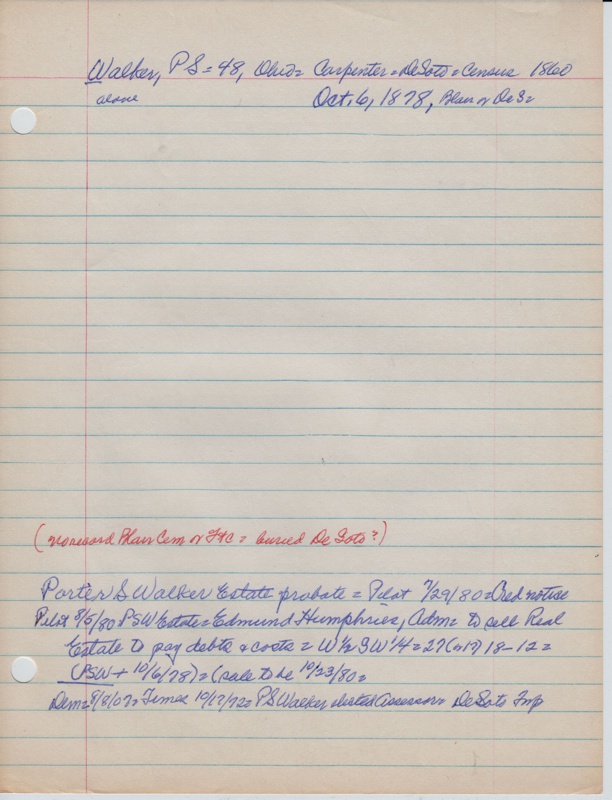 Walker, PS = 48, Ohio = Carpenter = DeSoto = Census 1860
alone Oct. 6, 1878, Blair or De S =
(no record Blair Cem or = buried De Soto?)
Porter S Walker Estate probate = Pilot 7/29/80 = Cred notice
Pilot 8/5/80 PSW Estate = Edmund Humphries, Adm = to sell Real
Estate to pay debts & costs = W 1/2 SW 1/4 = 27 18-12 =
(PSW + 10/6/78) = (sale to be 10/23/80 =
Dem = 8/8/07 = Times 10/17/72 = PS Walker elected Assessor = DeSoto